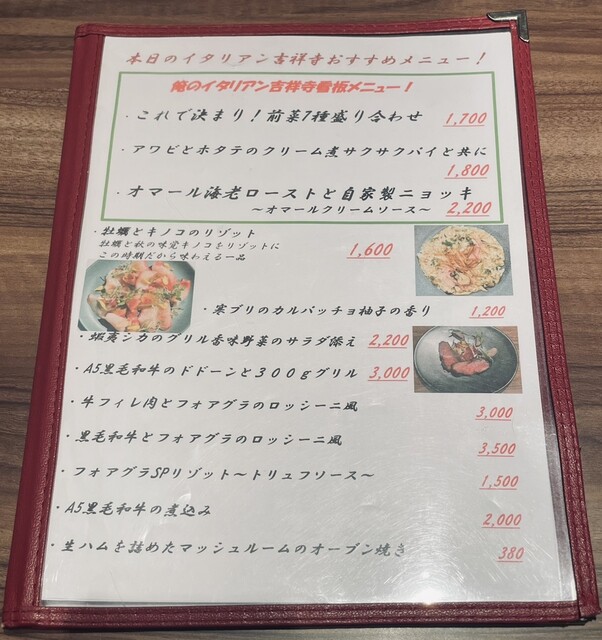 本日のイタリアン吉祥寺おすすめメニュー！
俺のイタリアン吉祥寺看板メニュー！
・これで決まり！前菜7種盛り合わせ 1,700
・アワビとホタテのクリーム煮サクサクパイと共に
1,800
・オマール海老ローストと自家製ニョッキ
～オマールクリームソース～ 2,200
・牡蠣とキノコのリゾット
牡蠣と秋の味覚キノコをリゾットに 1,600
この時期だから味わえる一品
・寒ブリのカルパッチョ柚子の香り 1,200
・蝦夷シカのグリル香味野菜のサラダ添え 2,200
・A5黒毛和牛のドドーンと３００gグリル 3,000
・牛フィレ肉とフォアグラのロッシーニ風 3,000
・黒毛和牛とフォアグラのロッシーニ風 3,500
・フォアグラSPリゾット～トリュフソース～ 1,500
・A5黒毛和牛の煮込み 2,000
・生ハムを詰めたマッシュルームのオーブン焼き 380